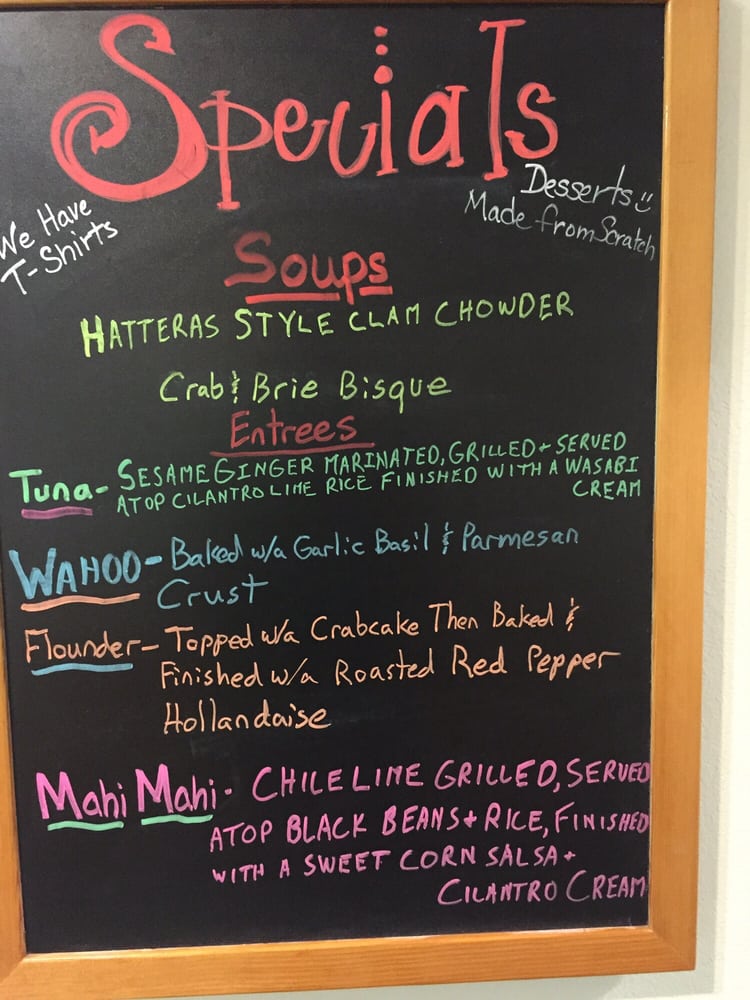 Specials
Desserts
Made from Scratch
We Have
T-Shirts
Soups
HATTERAS STYLE CLAM CHOWDER
Crab & Brie Bisque
Entrees
Tuna- SESAME GINGER MARINATED, GRILLED + SERVED
ATOP CILANTRO LIME RICE FINISHED WITH A WASABI
CREAM
WAHOO- Baked w/a Garlic Basil & Parmesan
Crust
Flounder- Topped w/a Crabcake Then Baked &
Finished w/a Roasted Red Pepper
Hollandaise
Mahi Mahi- CHILE LIME GRILLED, SERVED
ATOP BLACK BEANS + RICE, FINISHED
WITH A SWEET CORN SALSA +
CILANTRO CREAM